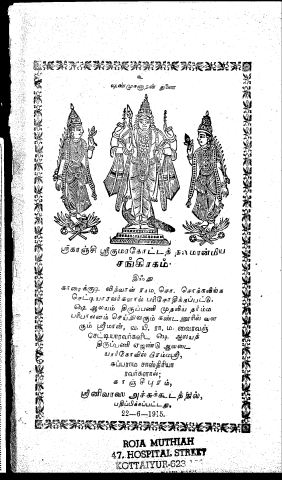 உ
ஷண்முகனுரன் துணை
ஸ்ரீகாஞ்சி ஸ்ரீகுமரகோட்டத் தலமான்மிய
சங்கிரகம்.
இஃது
காரைக்குடி வித்வான் ராம. சொ. சொக்கலிங்க
செட்டியாரவர்களால் பரிசோதிக்கப்பட்டு
ஷெ ஆலயம் திருப்பணி முதலிய தர்ம்ம
பரிபாலனம் செய்துவரும் கண்டனூரில் வஸ
கும் ஸ்ரீமான், வ. பி. ரா. ம. வைரவஞ்
செட்டியாரவர்களிட ஷெ ஆலயத்
திருப்பணி ஏஜண்டு
பிரம்மஸ்ரீ,
சுப்பராம சாஸ்திரியா
ரவர்களால்;
காஞ்சிபுரம்,
ஸ்ரீனிவாஸ அச்சுக்கூடத்தில்,
பதிப்பிக்கப்பட்டது,
22-6-1915.
ROJA MUTHIAH
47, HOSPITAL STREET
KOTTAIYUR-623